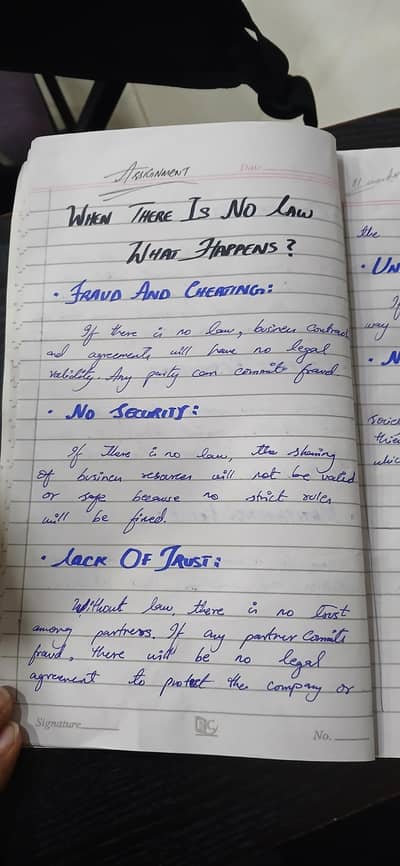 Assignment
When There Is No Law
What Happens?
• Fraud And Cheating:
If there is no law, business contract
and agreements will have no legal
validity. Any party can commits fraud.
• No Security:
If There is no law, the sharing
of business resources will not be valid
or safe because no strict rules
will be fixed.
• Lack Of Trust:
Without law there is no trust
among partners. If any partner Commits
fraud, there will be no legal
agreement to protect the company or
Signature
No.
the
• Un
way
• N